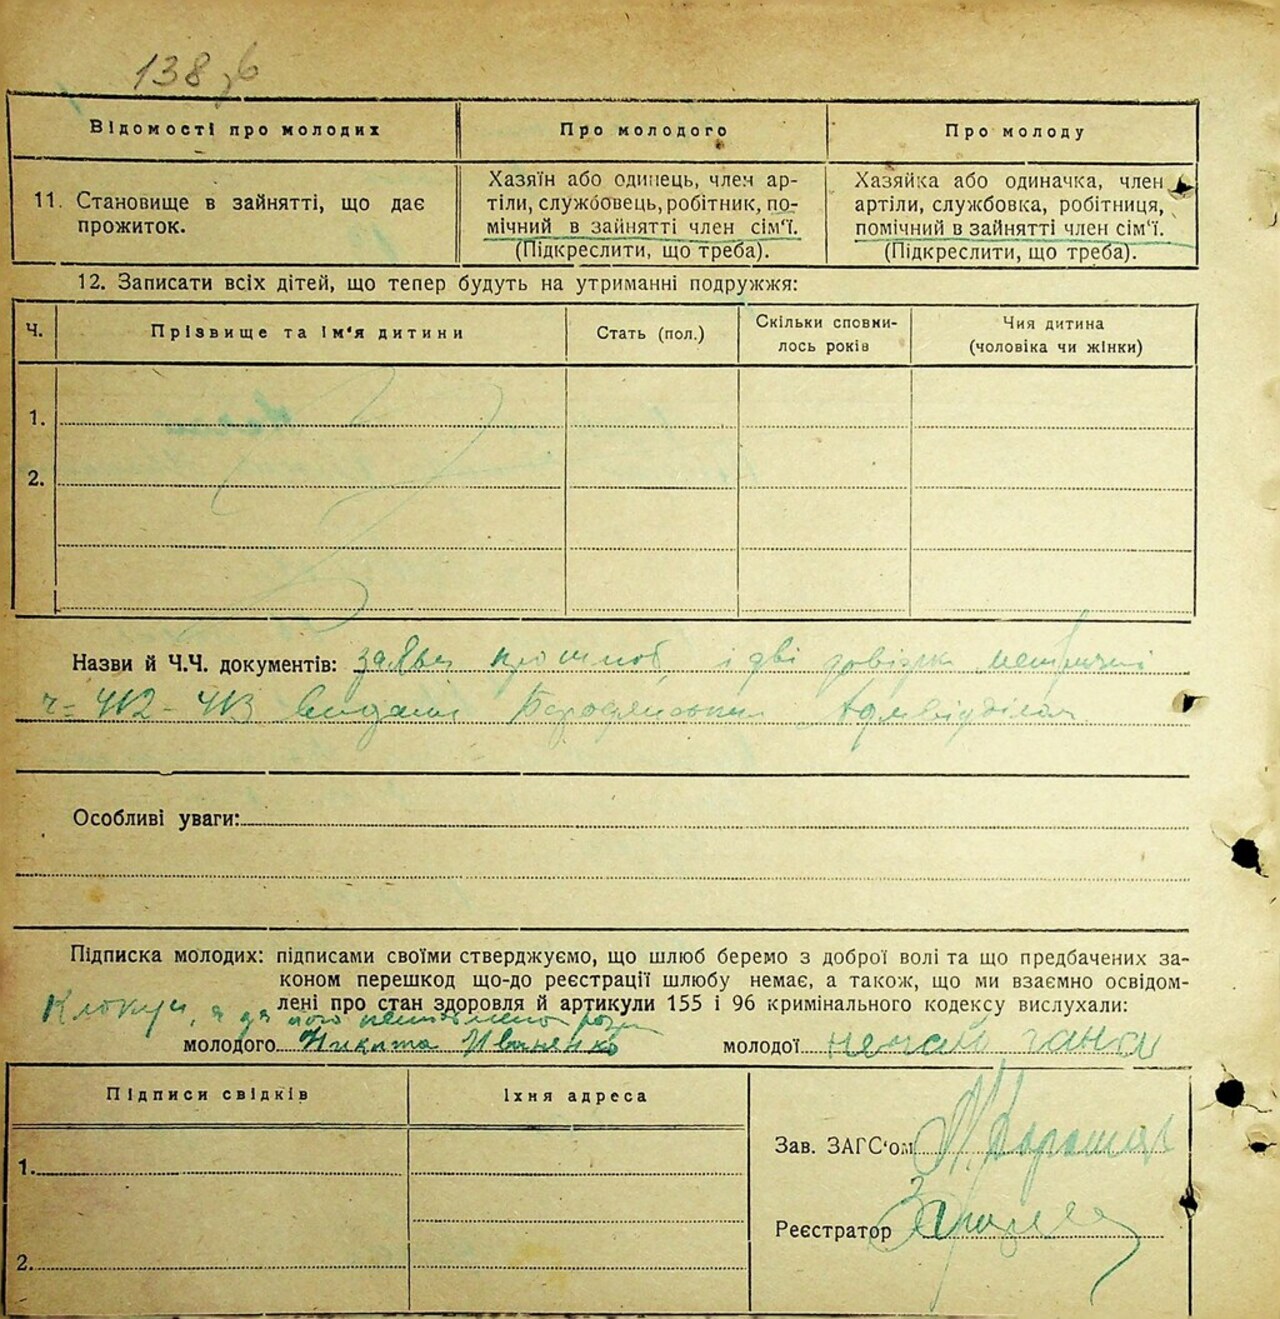 138 зв
Відомості про молодих
Про молодого
Про молоду
11. Становище в зайнятті, що дає
прожиток.
Хазяїн або одинець, член ар-
тіли, службовець, робітник, по-
мічний в зайнятті член сім'ї.
(Підкреслити, що треба).
Хазяйка або одиначка, член
артіли, службовка, робітниця,
помічний в зайнятті член сім'ї.
(Підкреслити, що треба).
12. Записати всіх дітей, що тепер будуть на утриманні подружжя:
Ч.
Прізвище та ім'я дитини
Стать (пол.)
Скільки сповни-
лось років
Чия дитина
(чоловіка чи жінки)
1.
2.
Назви й Ч.Ч. документів: і дві довідки метричні
ч= 412 - 413 видані Бородянським Адмвідділом
Особливі уваги:
Підписка молодих: підписами своїми стверджуємо, що шлюб беремо з доброї волі та що предбачених за-
коном перешкод що-до реєстрації шлюбу немає, а також, що ми взаємно освідом-
лені про стан здоровля й артикули 155 і 96 кримінального кодексу вислухали:
а за його
молодого Никита Иваненко
молодої нечай ганна
Підписи свідків
Їхня адреса
1.
2.
Зав. ЗАГС'ом
Реєстратор